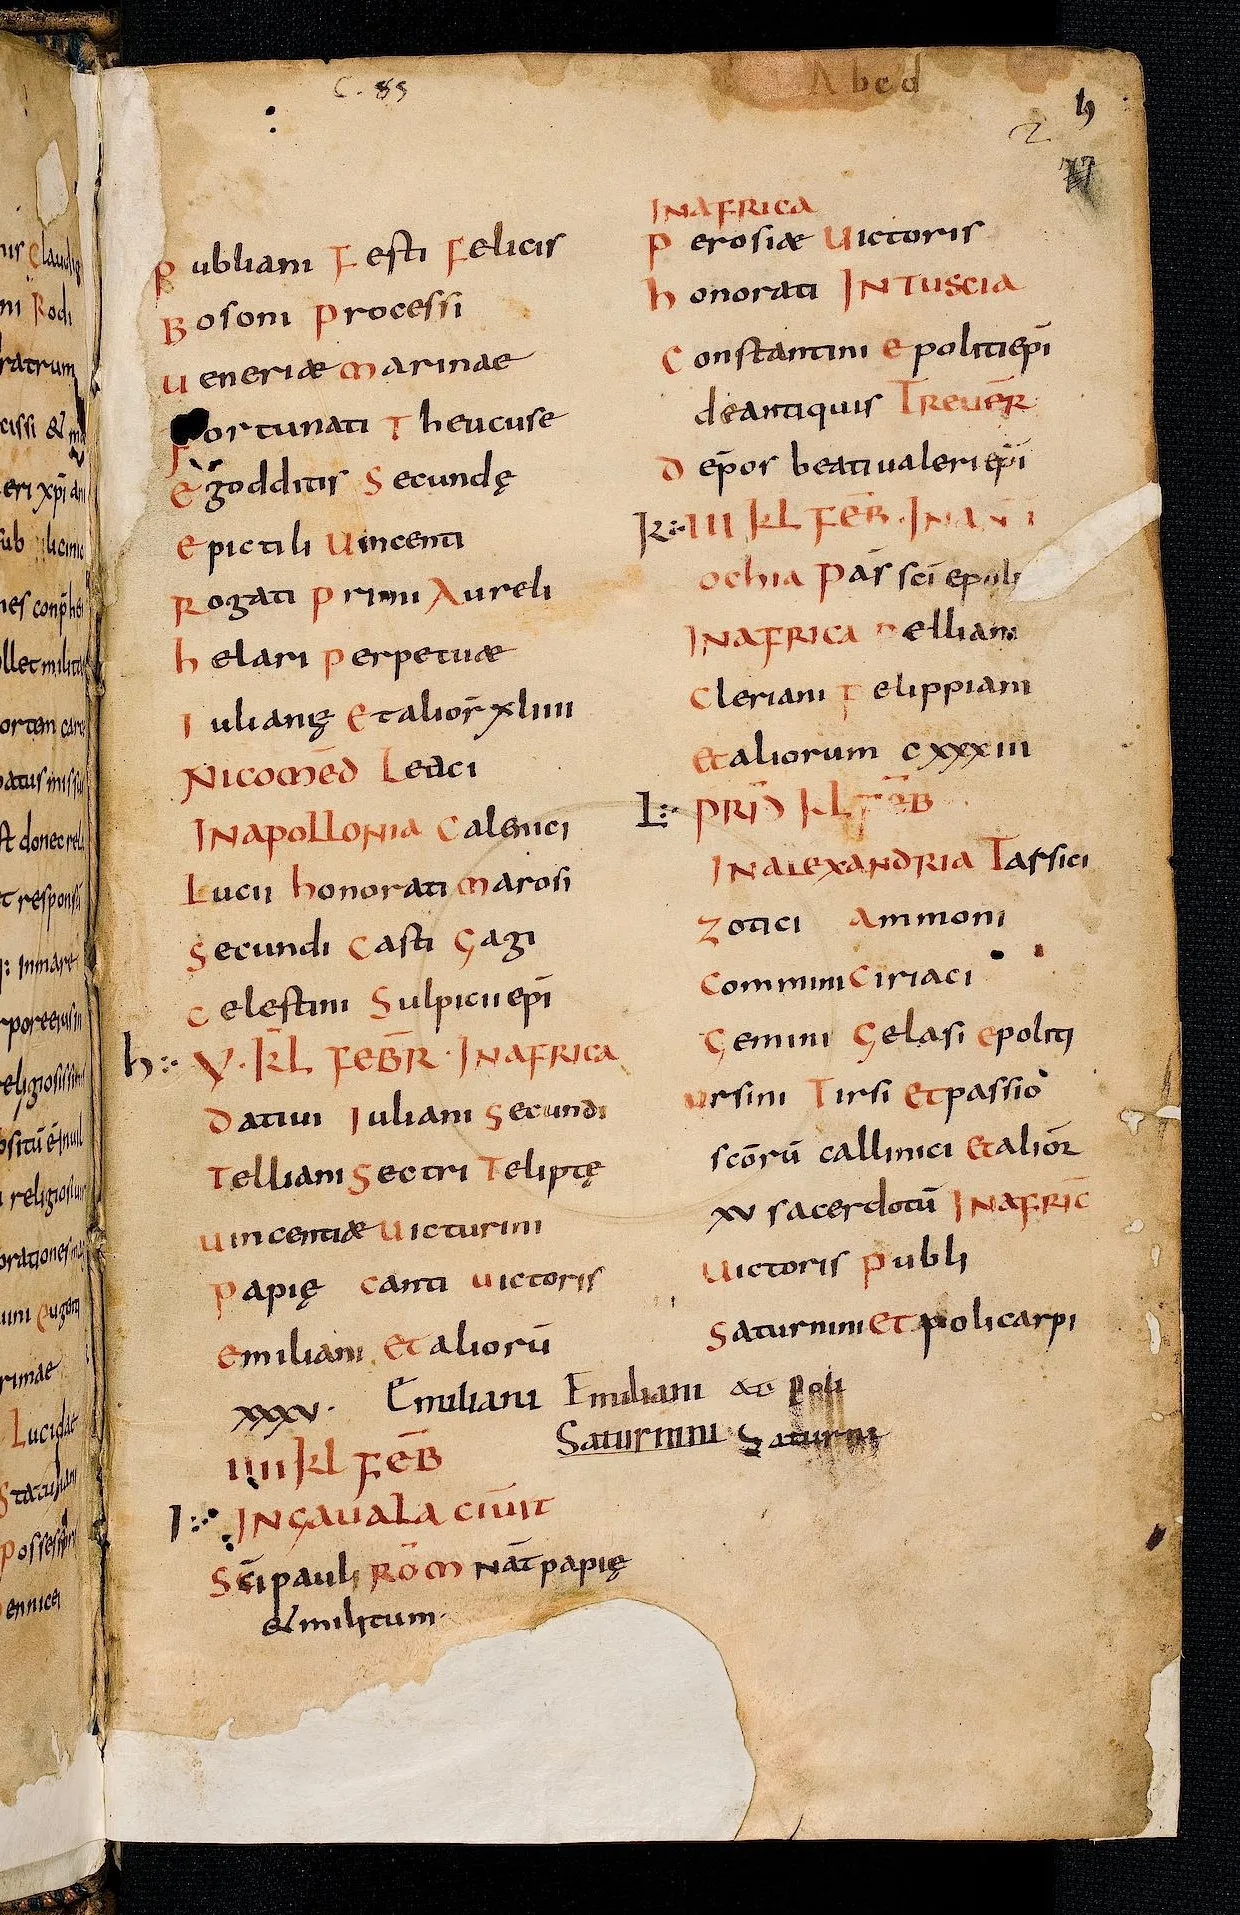 C. 85
Abcd
h
2
Publiani Festi Felicis
Bosoni Processi
Ueneriæ Marinae
Fortunati Theucuse
Egodditis Secundę
Epictili Uincenti
Rogati Primi Aureli
helari Perpetuæ
Iulianę Etalior̄ xliiii
Nicomēd Leuci
INapollonia Calenici
Lucii honorati Marosi
Secundi Casti Gagi
Celestini Sulpicii ep̄i
h: V. kL FEB̄R. INAFRICA
Datiui Iuliani Secundi
Telliani Sectri Teliptę
Uincentiæ Uicturini
Papię Canti Uictoris
Emiliani Et aliorū
xxxv.
IIII kl FEB̄
I: INGAUALA CIUIT
Sc̄i pauli ROM̄ NAT̄ papię
& militum
INAFRICA
Perosiæ Uictoris
honorati INTUSCIA
Constantini Epoliti ep̄i
de antiquis TREUER̄
Dep̄os beati ualeri ep̄i
k: III kL FEB̄. INAN
ochia Pas̄ sc̄i epoli
INAFRICA elliani
Cleriani Felippiani
Etaliorum cxxxiii
L: PRID̄ kL FEB̄
INALEXANDRIA Tarsici
Zotici Ammoni
Commini Ciriaci
Gemini Gelasi Epoliti
Ursini Tirsi Et passio
scōrū callinici Et alior̄
xv sacerdotū INAFRIC̄
Uictoris Publi
Saturnini Et policarpi
Emiliani Emiliani ac Poli
Saturnini Saturni